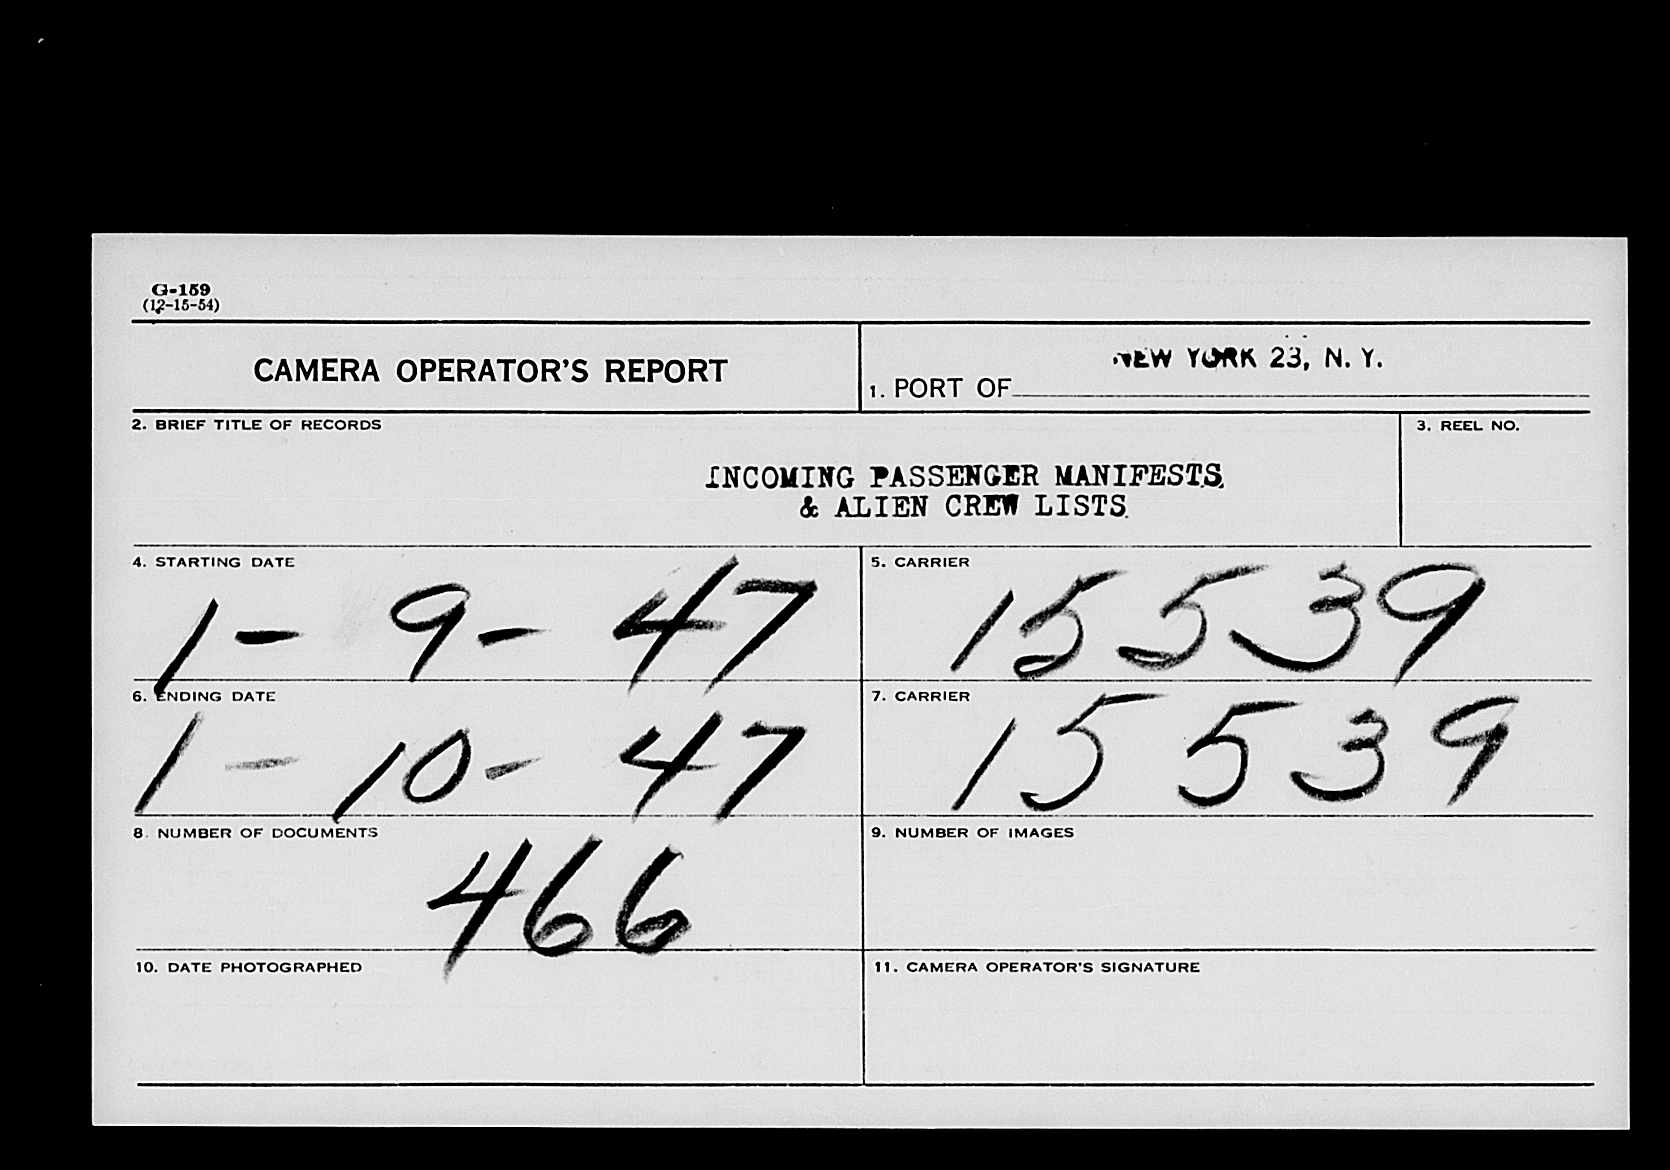 G-159
(12-15-54)
CAMERA OPERATOR'S REPORT
1. PORT OF NEW YORK 23, N. Y.
2. BRIEF TITLE OF RECORDS
INCOMING PASSENGER MANIFESTS
& ALIEN CREW LISTS
3. REEL NO.
4. STARTING DATE
1-9-47
5. CARRIER
15539
6. ENDING DATE
1-10-47
7. CARRIER
15539
8. NUMBER OF DOCUMENTS
466
9. NUMBER OF IMAGES
10. DATE PHOTOGRAPHED
11. CAMERA OPERATOR'S SIGNATURE